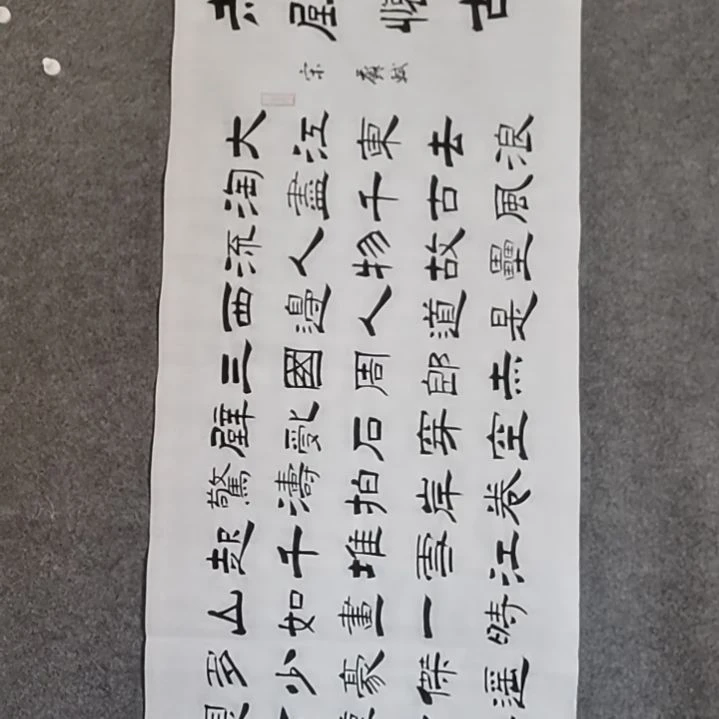 壁懷古
宋 蘇軾
大江東去浪
淘盡千古風
流人物故壘
西邊人道是
三國周郎赤
壁亂石穿空
驚濤拍岸卷
起千堆雪江
山如畫一時
多少豪傑遥